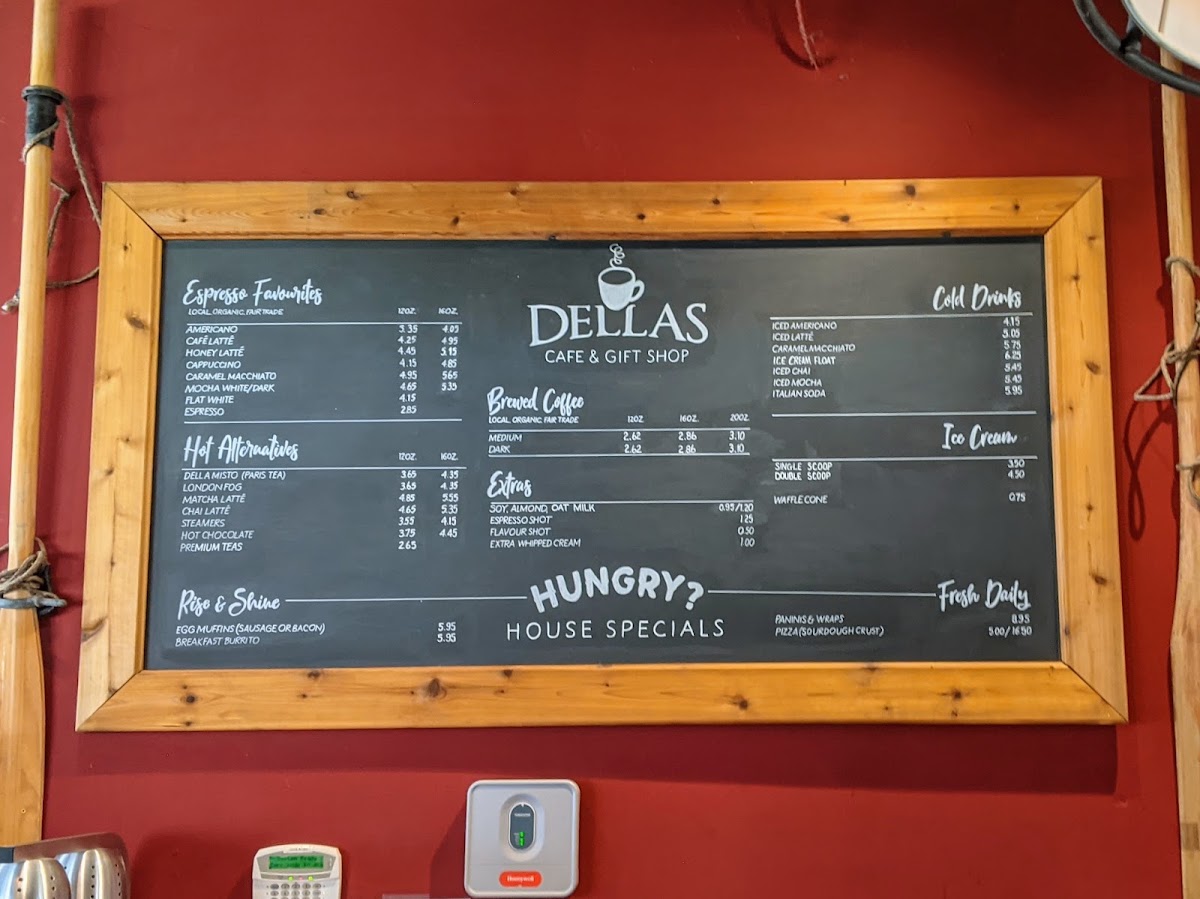 DELLAS
CAFE & GIFT SHOP
Espresso Favourites
LOCAL, ORGANIC, FAIR TRADE 12OZ. 16OZ.
AMERICANO 3.35 4.05
CAFÉ LATTÉ 4.25 4.95
HONEY LATTÉ 4.45 5.15
CAPPUCCINO 4.15 4.85
CARAMEL MACCHIATO 4.95 5.65
MOCHA WHITE/DARK 4.65 5.35
FLAT WHITE 4.15
ESPRESSO 2.85
Hot Alternatives 12OZ. 16OZ.
DELLA MISTO (PARIS TEA) 3.65 4.35
LONDON FOG 3.65 4.35
MATCHA LATTÉ 4.85 5.55
CHAI LATTÉ 4.65 5.35
STEAMERS 3.55 4.15
HOT CHOCOLATE 3.75 4.45
PREMIUM TEAS 2.65
Brewed Coffee
LOCAL, ORGANIC, FAIR TRADE 12OZ 16OZ. 20OZ.
MEDIUM 2.62 2.86 3.10
DARK 2.62 2.86 3.10
Extras
SOY, ALMOND, OAT MILK 0.95/1.20
ESPRESSO SHOT 1.25
FLAVOUR SHOT 0.50
EXTRA WHIPPED CREAM 1.00
Cold Drinks
ICED AMERICANO 4.15
ICED LATTÉ 5.05
CARAMEL MACCHIATO 5.75
ICE CREAM FLOAT 6.25
ICED CHAI 5.45
ICED MOCHA 5.45
ITALIAN SODA 5.95
Ice Cream
SINGLE SCOOP 3.50
DOUBLE SCOOP 4.50
WAFFLE CONE 0.75
HUNGRY?
HOUSE SPECIALS
Rise & Shine
EGG MUFFINS (SAUSAGE OR BACON) 5.95
BREAKFAST BURRITO 5.95
Fresh Daily
PANINIS & WRAPS 8.95
PIZZA (SOURDOUGH CRUST) 5.00/16.50
Honeywell